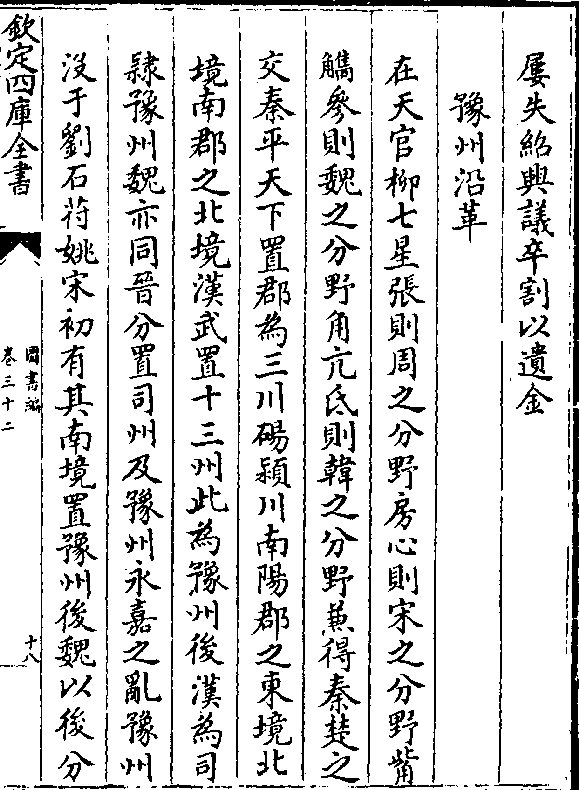 屢失紹興議卒割以遺金
豫州沿革
在天官柳七星張則周之分野房心則宋之分野觜
觿參則魏之分野角亢氐則韓之分野兼得秦楚之
交秦平天下置郡為三川碭潁川南陽郡之東境北
境南郡之北境漢武置十三州此為豫州後漢為司
隸豫州魏亦同晉分置司州及豫州永嘉之亂豫州
沒于劉石苻姚宋初有其南境置豫州後魏以後分
欽定四庫全書
圖書編
卷三十二
十八